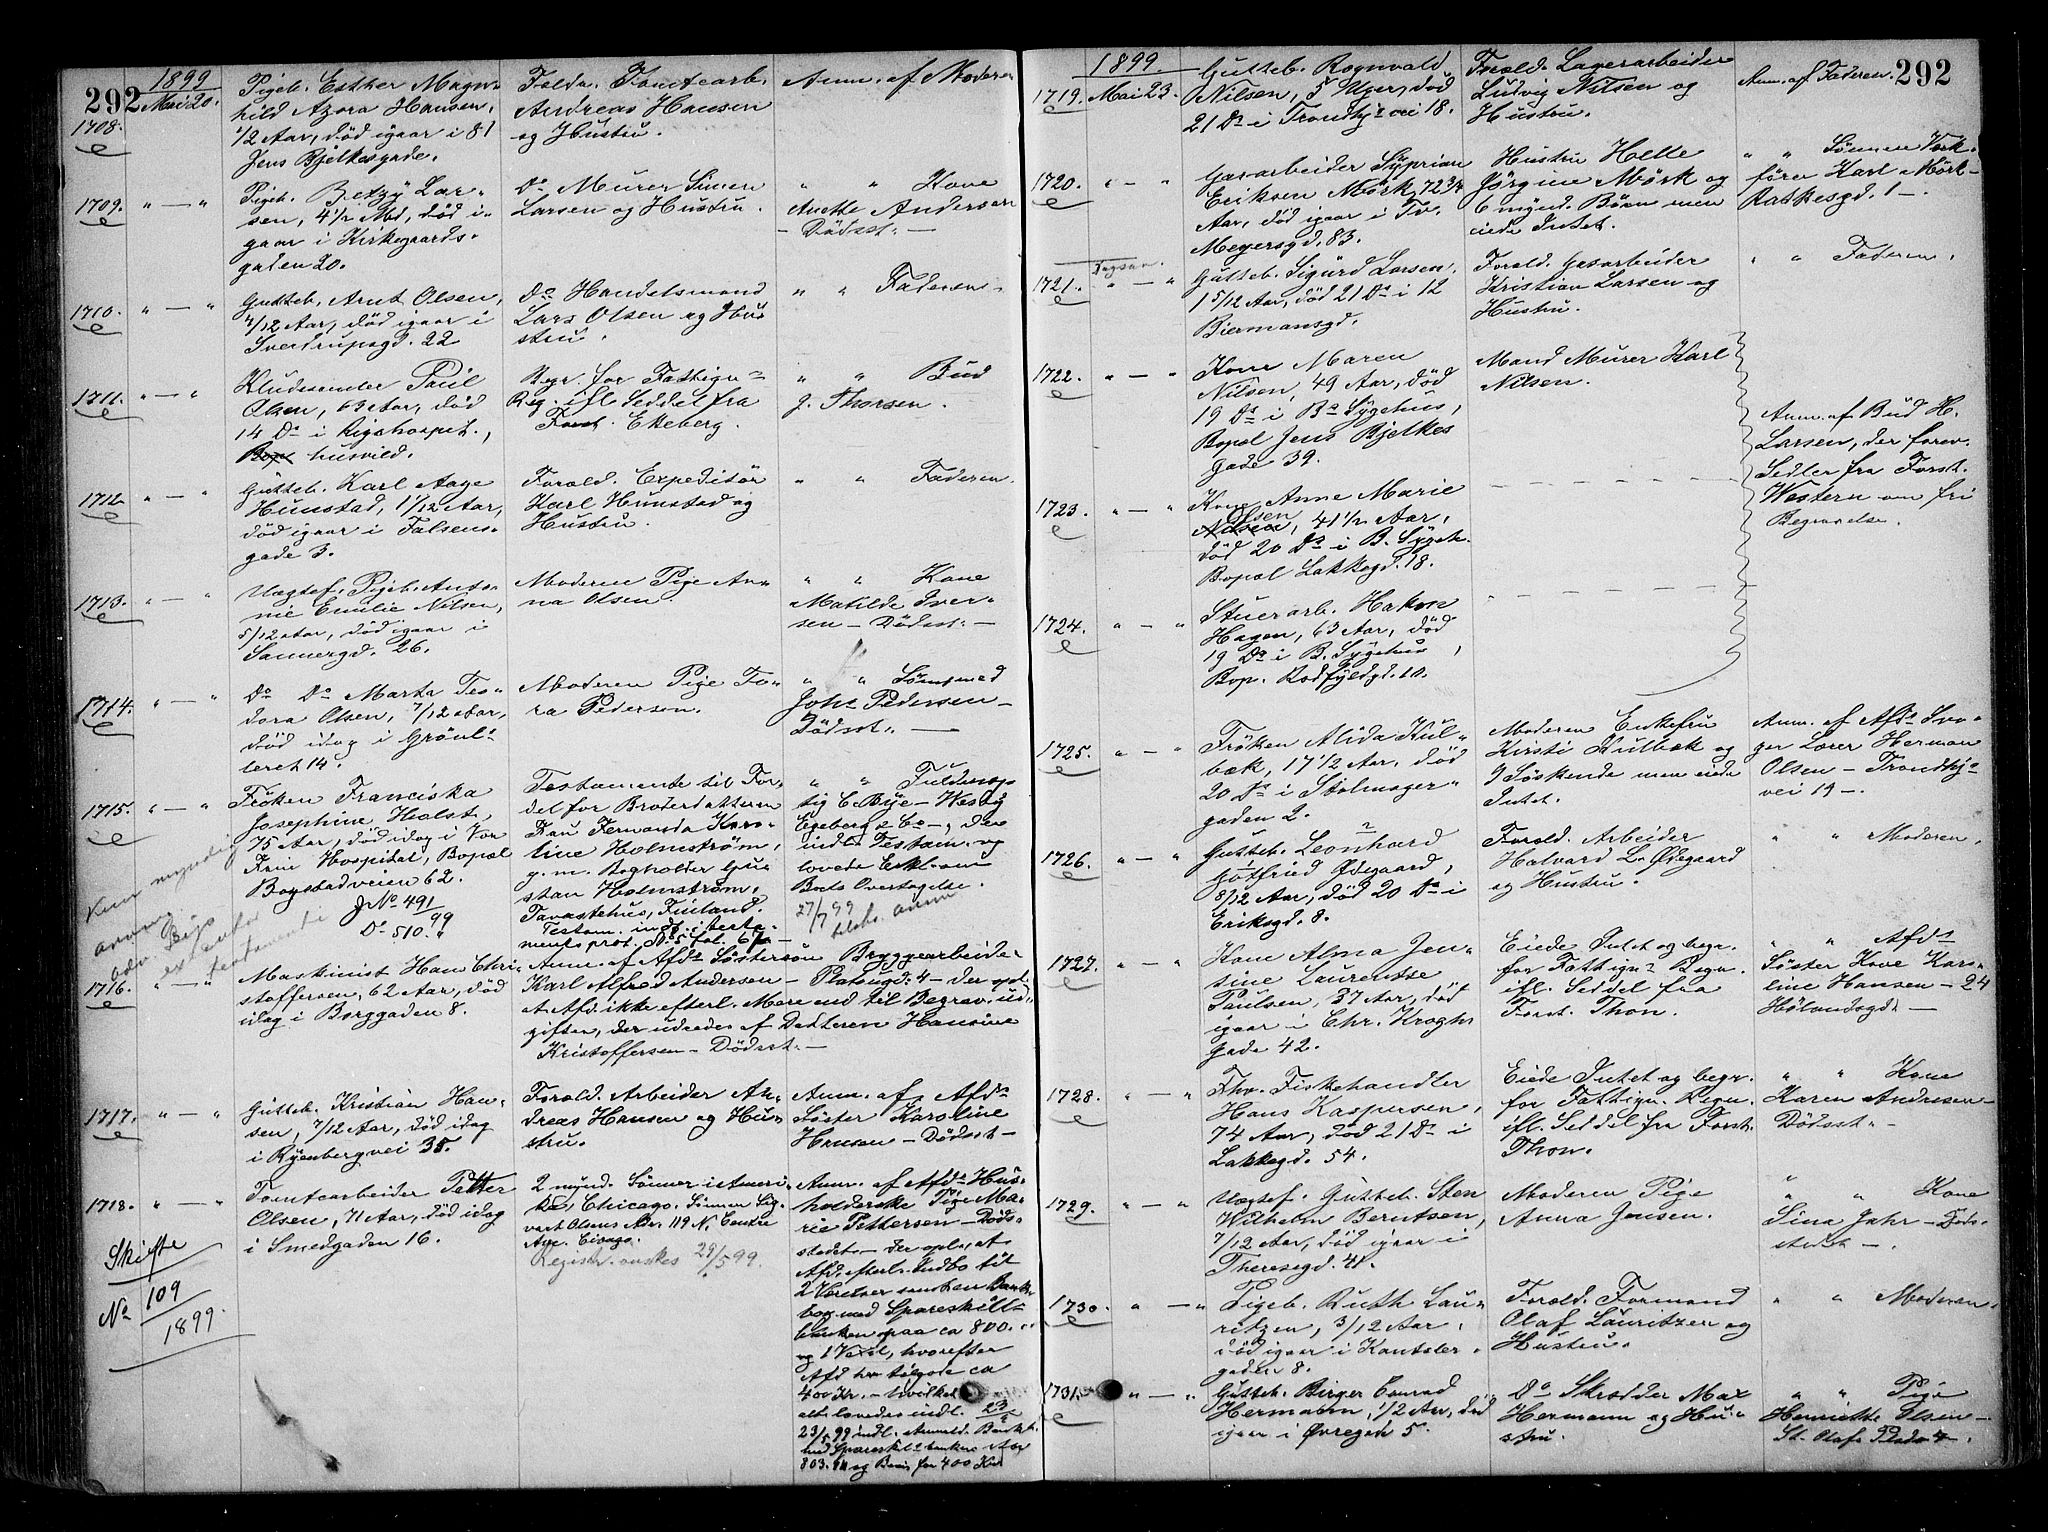 292
1899
Mai 20.
1708.
Pigeb. Esther Magn-
hild Azora Hansen,
1/2 Aar, død igaar i 81
Jens Bjelkesgade.
Andreas Hansen
og Hustru.
Anm. af Moderen
1709. " — "
Pigeb. Betzy Lar-
sen, 4 1/2 Md, død i-
gaar i Kirkegaards-
gaden 20.
Do Murer Simen
Larsen og Hustru.
" " Kone
Anette Andersen
— Dødsst. —
1710. " — "
Gutteb. Arnt Olsen,
4/12 Aar, død igaar i
Sverdrupsgd. 22
Do Handelsmand
Lars Olsen og Hu-
stru.
" " Faderen.
1711. " — "
Kludesamler Paul
Olsen, 63 Aar, død
14 Ds i Rigshospit.,
husvild.
Begr. for Fattigv.
Reg. ifl. Seddel fra
Forst. Ekeberg.
" " Bud
J. Thorsen.
1712 " — "
Gutteb. Karl Aage
Hunstad, 1 1/12 Aar,
død igaar i Falsens-
gade 3.
Forald. Expeditør
Karl Hunstad og
Hustru.
" " Faderen.
1713. " — "
Uægtef. Pigeb. Anto-
nie Emilie Nilsen,
5/12 Aar, død igaar i
Sannergd. 26.
Moderen Pige An-
na Olsen.
" " Kone
Matilde Iver-
sen — Dødsst. —
1714. " — "
Do Do Marta Teo-
dora Olsen, 7/12 Aar,
død idag i Grønl.
leret 14.
Moderen Pige To-
ra Pedersen.
" "
Johs Pedersen —
Dødsst. —
1715. " — "
Frøken Franciska
Josephine Holst,
75 Aar, død idag i Vor
Frue Hospital, Bopæl
Bogstadveien 62.
J No 491/99
Do 510. "
Testamente til For-
del for Broderdatteren
Fru Fernanda Karo-
line Holmstrøm,
g. m. Bogholder Gu-
stav Holmstrøm,
Tavastehus, Finland.
Testam. indf. i Testa-
mentsprot. No 5 fol. 67
" " Fuldmæg-
tig C. Bye — Westy
Egeberg & Co —, der
indl. Testam. og
lovede Erkl. om
Boets Overtagelse.
27/7 99
1716. " — "
Maskinist Hans Chri-
stoffersen, 62 Aar, død
idag i Borggaden 8.
Anm. af Afds Søstersøn Bryggearbeider
Karl Alfred Andersen — Platousgd. 4 — der opl.
at Afd. ikke efterl. Mere end til Begrav. ud-
gifter, der udredes af Datteren Hansine
Kristoffersen — Dødsst. —
1717. " — "
Gutteb. Kristian Han-
sen, 7/12 Aar, død idag
i Ryenbergvei 35.
Forald. Arbeider An-
dreas Hansen og Hu-
stru.
Anm. af Afds
Søster Karoline
Hansen — Dødsst —
1718. " — "
Tomtearbeider Petter
Olsen, 71 Aar, død idag
i Smedgaden 16.
2 mynd. Sønner i Ameri-
ka, Chicago. Sønnen Sig-
vart Olsens Adr. 119 N. Centre
Ave. Cicago.
Registr. ønskes 29/5 99.
Anm. af Afds Hus-
holderske Pige Ma-
rie Pettersen — Døds-
stedet — der opl., at
Afd. efterl. Indbo til
2 Værelser samt en Bank-
bog med Spareskill.-
banken paa ca 800. "
og 1 Vexel, hvorefter
Afd. har tilgode ca
400 Kr. — hvilket
alt lovedes indl.
Skifte
No 109
1899.
292
1899
1719. Mai 23.
Gutteb. Rognvald
Nilsen, 5 Uger, død
21 Ds i Trondhj. vei 18.
Forald. Lagerarbeider
Ludvig Nilsen og
Hustru.
Anm. af Faderen.
1720. " — "
Gasarbeider Syprian
Eriksen Mørk, 72 3/4
Aar, død igaar i Tv.
Meyersgd. 83.
Hustru Helle
Jørgine Mørk og
6 mynd. Børn men
eiede Intet.
" " Sønnen Værk-
fører Karl Mørk —
Ratkesgd. 1 —
1721. " — "
Gutteb. Sigurd Larsen,
1 5/12 Aar, død 21 Ds i 12
Biermansgd.
Forald. Gasarbeider
Kristian Larsen og
Hustru.
" " Faderen.
1722. " — "
Kone Maren
Nilsen, 49 Aar, død
19 Ds i Bs Sygehus,
Bopæl Jens Bjelkes
gade 39.
Mand Murer Karl
Nilsen.
Anm. af Bud H.
Larsen, der forev.
Sedler fra Forst.
Western om fri
Begravelse.
1723. " — "
Kone Anne Marie
Olsen, 41 1/2 Aar,
død 20 Ds i B. Sygeh.
Bopæl Lakkegd. 18.
1724. " — "
Stuerarb. Hakon
Hagen, 63 Aar, død
19 Ds i B. Sygehus,
Bop. Rodfyldgd. 10.
1725. " — "
Frøken Alida Kul-
bæk, 17 1/2 Aar, død
20 Ds i Stolmager-
gaden 2.
Moderen Enkefru
Kirsti Kulbæk og
9 Søskende men eiede
Intet.
Anm. af Afds Svo-
ger Lærer Herman
Olsen — Trondhj.
vei 19 —.
1726. " — "
Gutteb. Leonhard
Gotfried Ødegaard,
8/12 Aar, død 20 Ds i
Eriksgd. 8.
Forald. Arbeider
Halvard L. Ødegaard
og Hustru.
" " Moderen.
1727. " — "
Kone Alma Jen-
sine Laurentse
Paulsen, 37 Aar, død
igaar i Chr. Kroghs
gade 42.
Eiede Intet og begr.
for Fattigv. Regn.
ifl. Seddel fra
Forst. Thon.
" " Afds
Søster Kone Karo-
line Hansen — 24
Hølandsgd —
1728. " — "
Fhv. Fiskehandler
Hans Kaspersen,
74 Aar, død 21 Ds i
Lakkegd. 54.
Eiede Intet og begr.
for Fattigv. Regn.
ifl. Seddel fra Forst.
Thon.
" " Kone
Karen Andersen —
Dødsst —
1729. " — "
Uægtef. Gutteb. Sten
Wilhelm Berntsen,
7/12 Aar, død igaar i
Theresegd. 41.
Moderen Pige
Anna Jensen.
" " Kone
Sina Jahr — Døds-
stedet —.
1730. " — "
Pigeb. Ruth Lau-
ritzen, 3/12 Aar,
død igaar i Kantsler-
gaden 8.
Forald. Formand
Olaf Lauritzen og
Hustru.
" " Moderen.
1731. " — "
Gutteb. Birger Conrad
Hermann, 1/2 Aar, død
igaar i Øvregade 5.
Do Skræder Max
Hermann og Hu-
stru.
" " Pige
Henriette Olsen —
St. Olafs Plads 4 —.